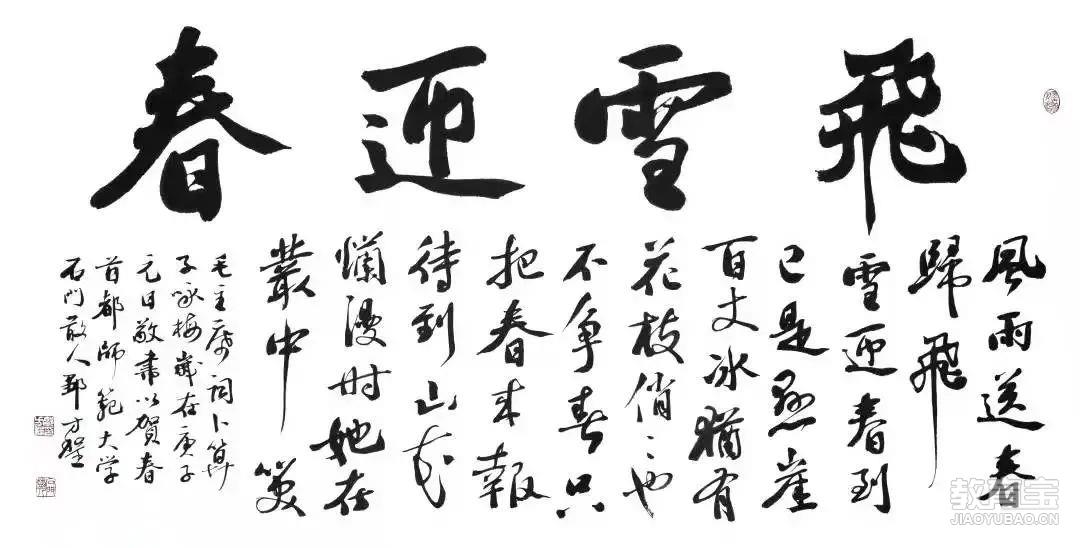 飛雪迎春
風雨送春
歸飛
雪迎春到
已是懸崖
百丈冰猶有
花枝俏〻也
不争春只
把春来報
待到山花
爛漫时她在
叢中笑
毛主席詞卜算
子咏梅歲在庚子
元日敬書以賀春
首都師範大学
石門散人
教育宝
JIAOYUBAO.CN